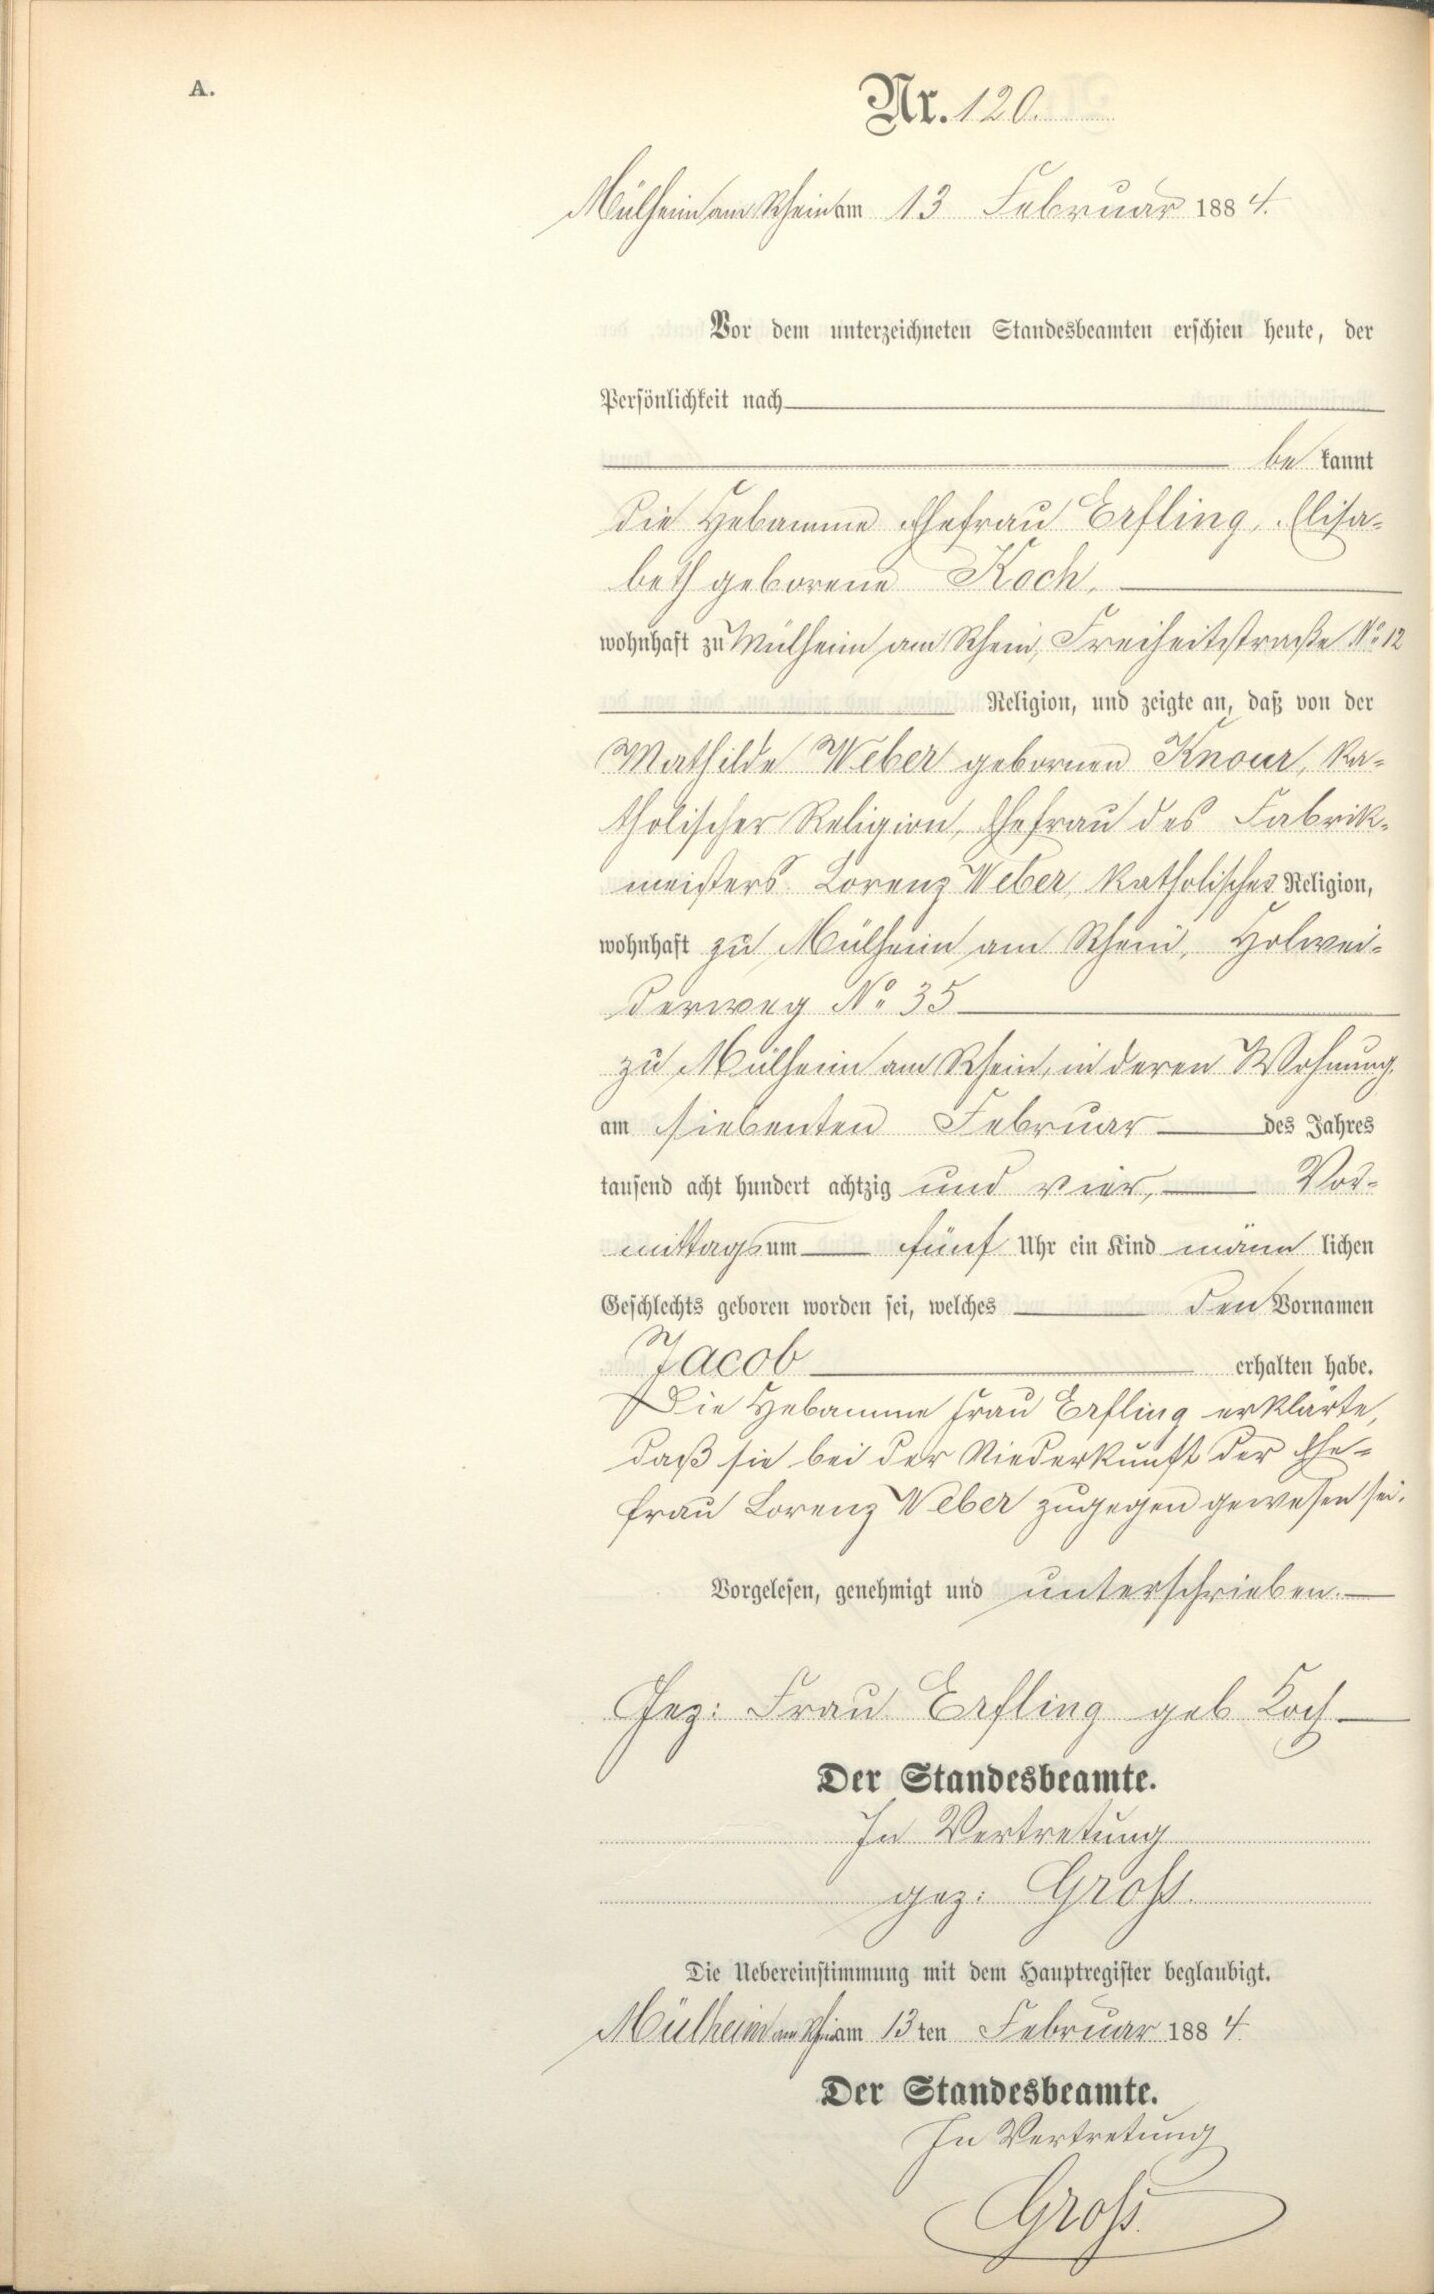 A.
Nr. 120.
Mülheim am Rhein am 13 Februar 1884.
Vor dem unterzeichneten Standesbeamten erschien heute, der
Persönlichkeit nach
be kannt
die Hebamme Ehefrau Erfling, Elisa-
beth geborene Koch,
wohnhaft zu Mülheim am Rhein, Freiheitstraße No 12
Religion, und zeigte an, daß von der
Mathilde Weber gebornen Knour, ka-
tholischer Religion, Ehefrau des Fabrik-
meisters Lorenz Weber, katholischer Religion,
wohnhaft zu Mülheim am Rhein, Holwei-
derweg No 35
zu Mülheim am Rhein, in deren Wohnung,
am siebenten Februar des Jahres
tausend acht hundert achtzig und vier, Vor-
mittags um fünf Uhr ein Kind männ lichen
Geschlechts geboren worden sei, welches den Vornamen
Jacob erhalten habe.
Die Hebamme Frau Erfling erklärte,
daß sie bei der Niederkunft der Ehe-
frau Lorenz Weber zugegen gewesen sei.
Vorgelesen, genehmigt und unterschrieben.
Gez: Frau Erfling geb Koch
Der Standesbeamte.
In Vertretung
gez: Groß.
Die Uebereinstimmung mit dem Hauptregister beglaubigt.
Mülheim am Rhein am 13ten Februar 1884
Der Standesbeamte.
In Vertretung
Groß.